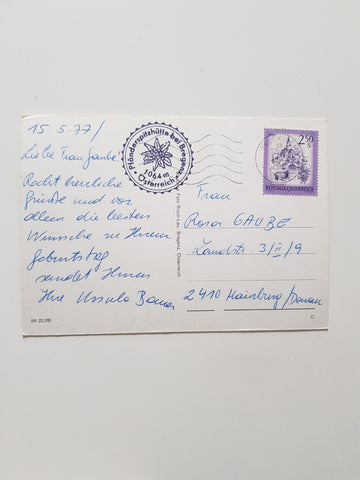 15.5.77/
Liebe Frau Gaube!
Recht herzliche
Grüße und vor
allem die besten
Wünsche zu Ihrem
Geburtstag
sendet Ihnen
Ihre Ursula
RH 23.295
Pfänderspitzhütte bei Bregenz
1064 m
Österreich
Foto Risch-Lau, Bregenz, Österreich
2.50
REPUBLIK ÖSTERREICH
Frau
Rosa GAUBE
Landstr. 3/II/9
2410 Hainburg/Donau